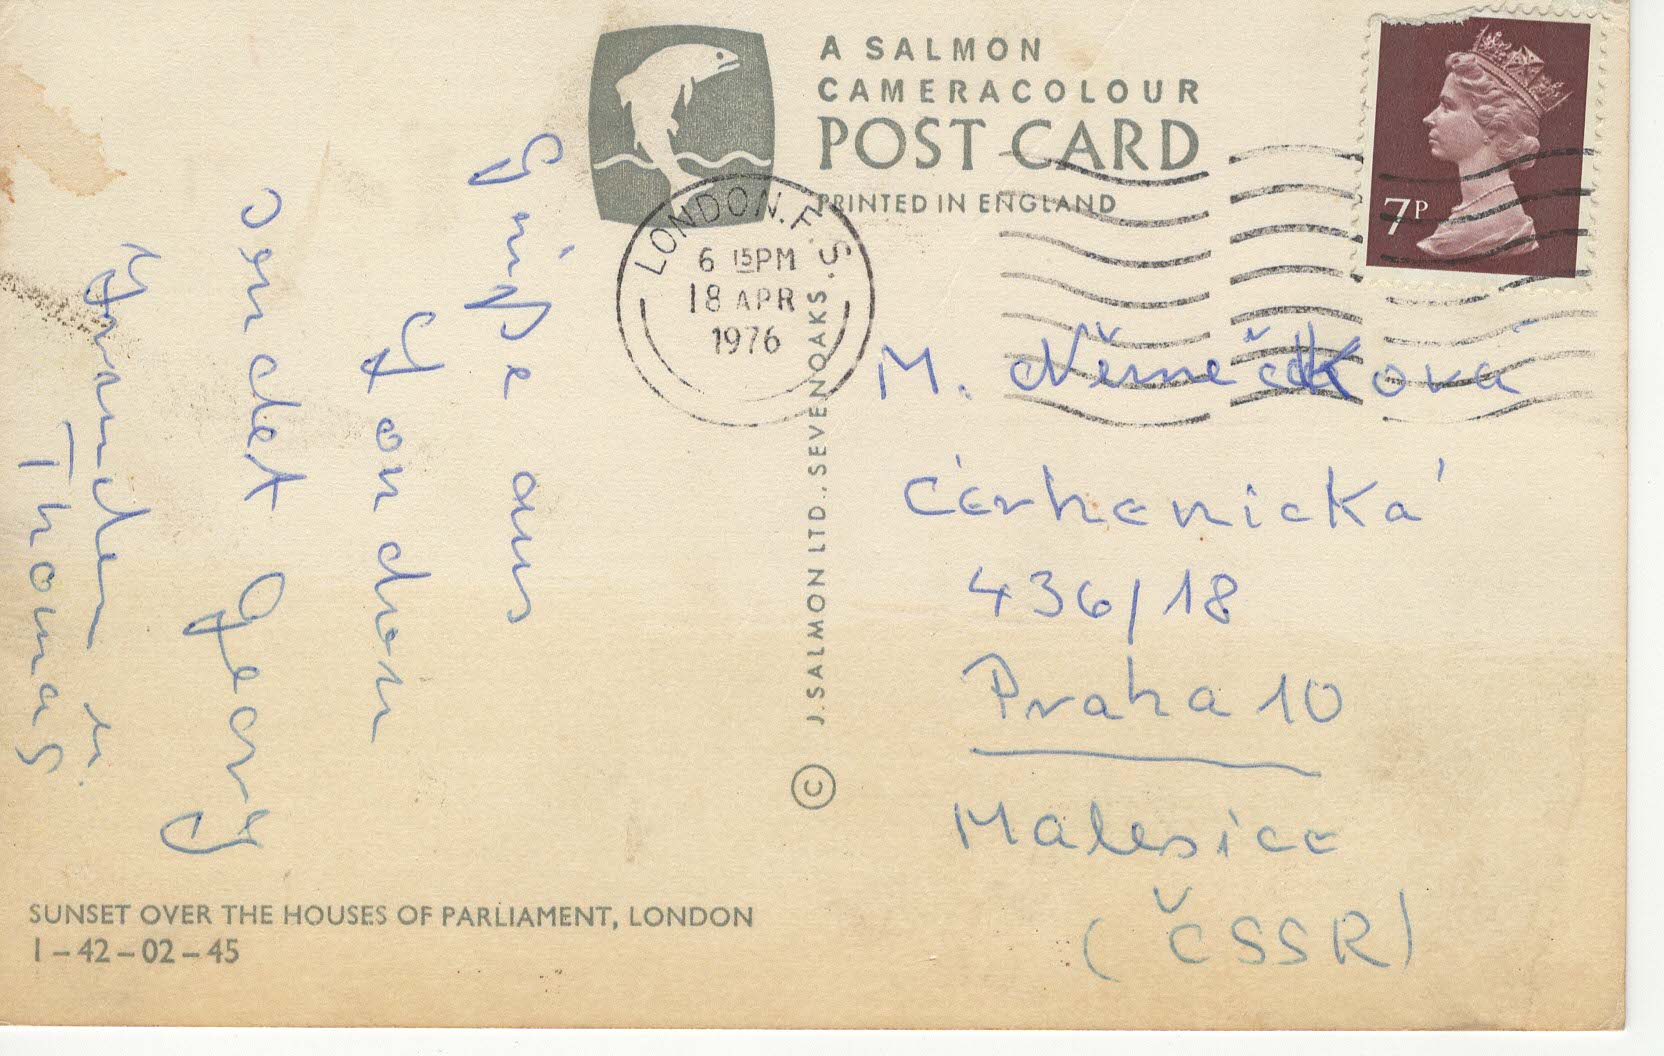 A SALMON
CAMERACOLOUR
POST CARD
PRINTED IN ENGLAND
7P
LONDON. F.S.
6 15PM
18 APR
1976
Grüße aus
London
sendet Georg
u.
Thomas
M. Němečková
Cérhenická
436/18
Praha 10
Malesice
(ČSSR)
© J. SALMON LTD., SEVENOAKS
SUNSET OVER THE HOUSES OF PARLIAMENT, LONDON
1-42-02-45